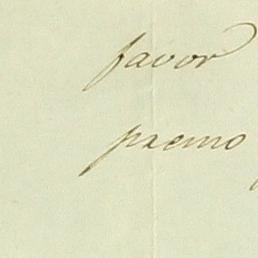 favor
premo